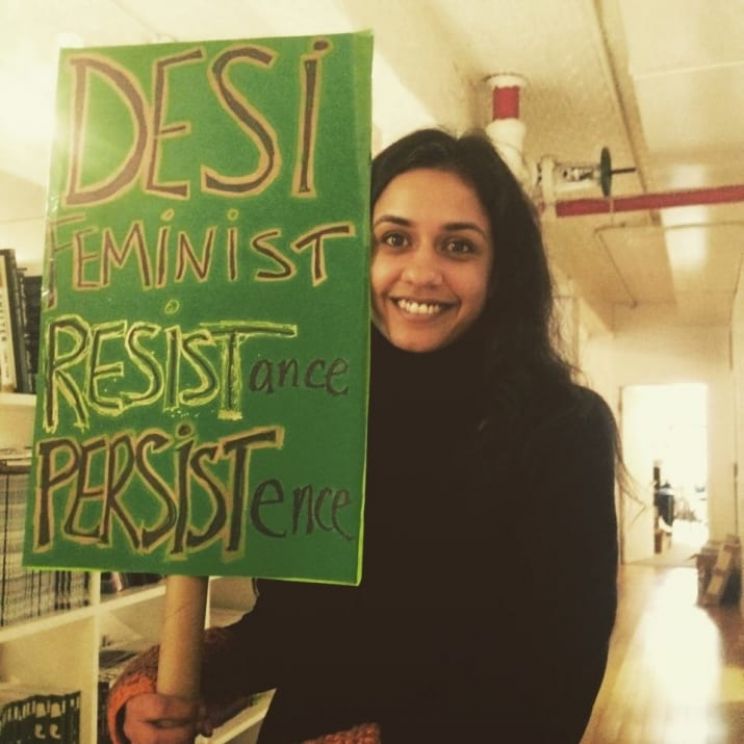 DESI
FEMINIST
RESISTance
PERSISTence